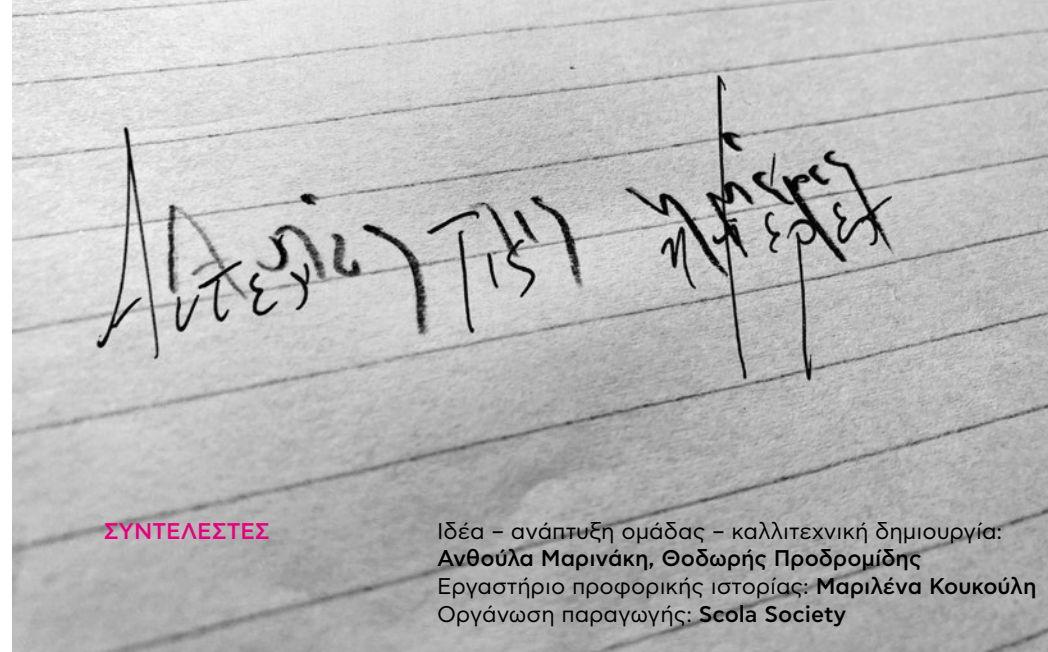 τις ημέρες
ΣΥΝΤΕΛΕΣΤΕΣ
Ιδέα – ανάπτυξη ομάδας – καλλιτεχνική δημιουργία:
Ανθούλα Μαρινάκη, Θοδωρής Προδρομίδης
Εργαστήριο προφορικής ιστορίας: Μαριλένα Κουκούλη
Οργάνωση παραγωγής: Scola Society